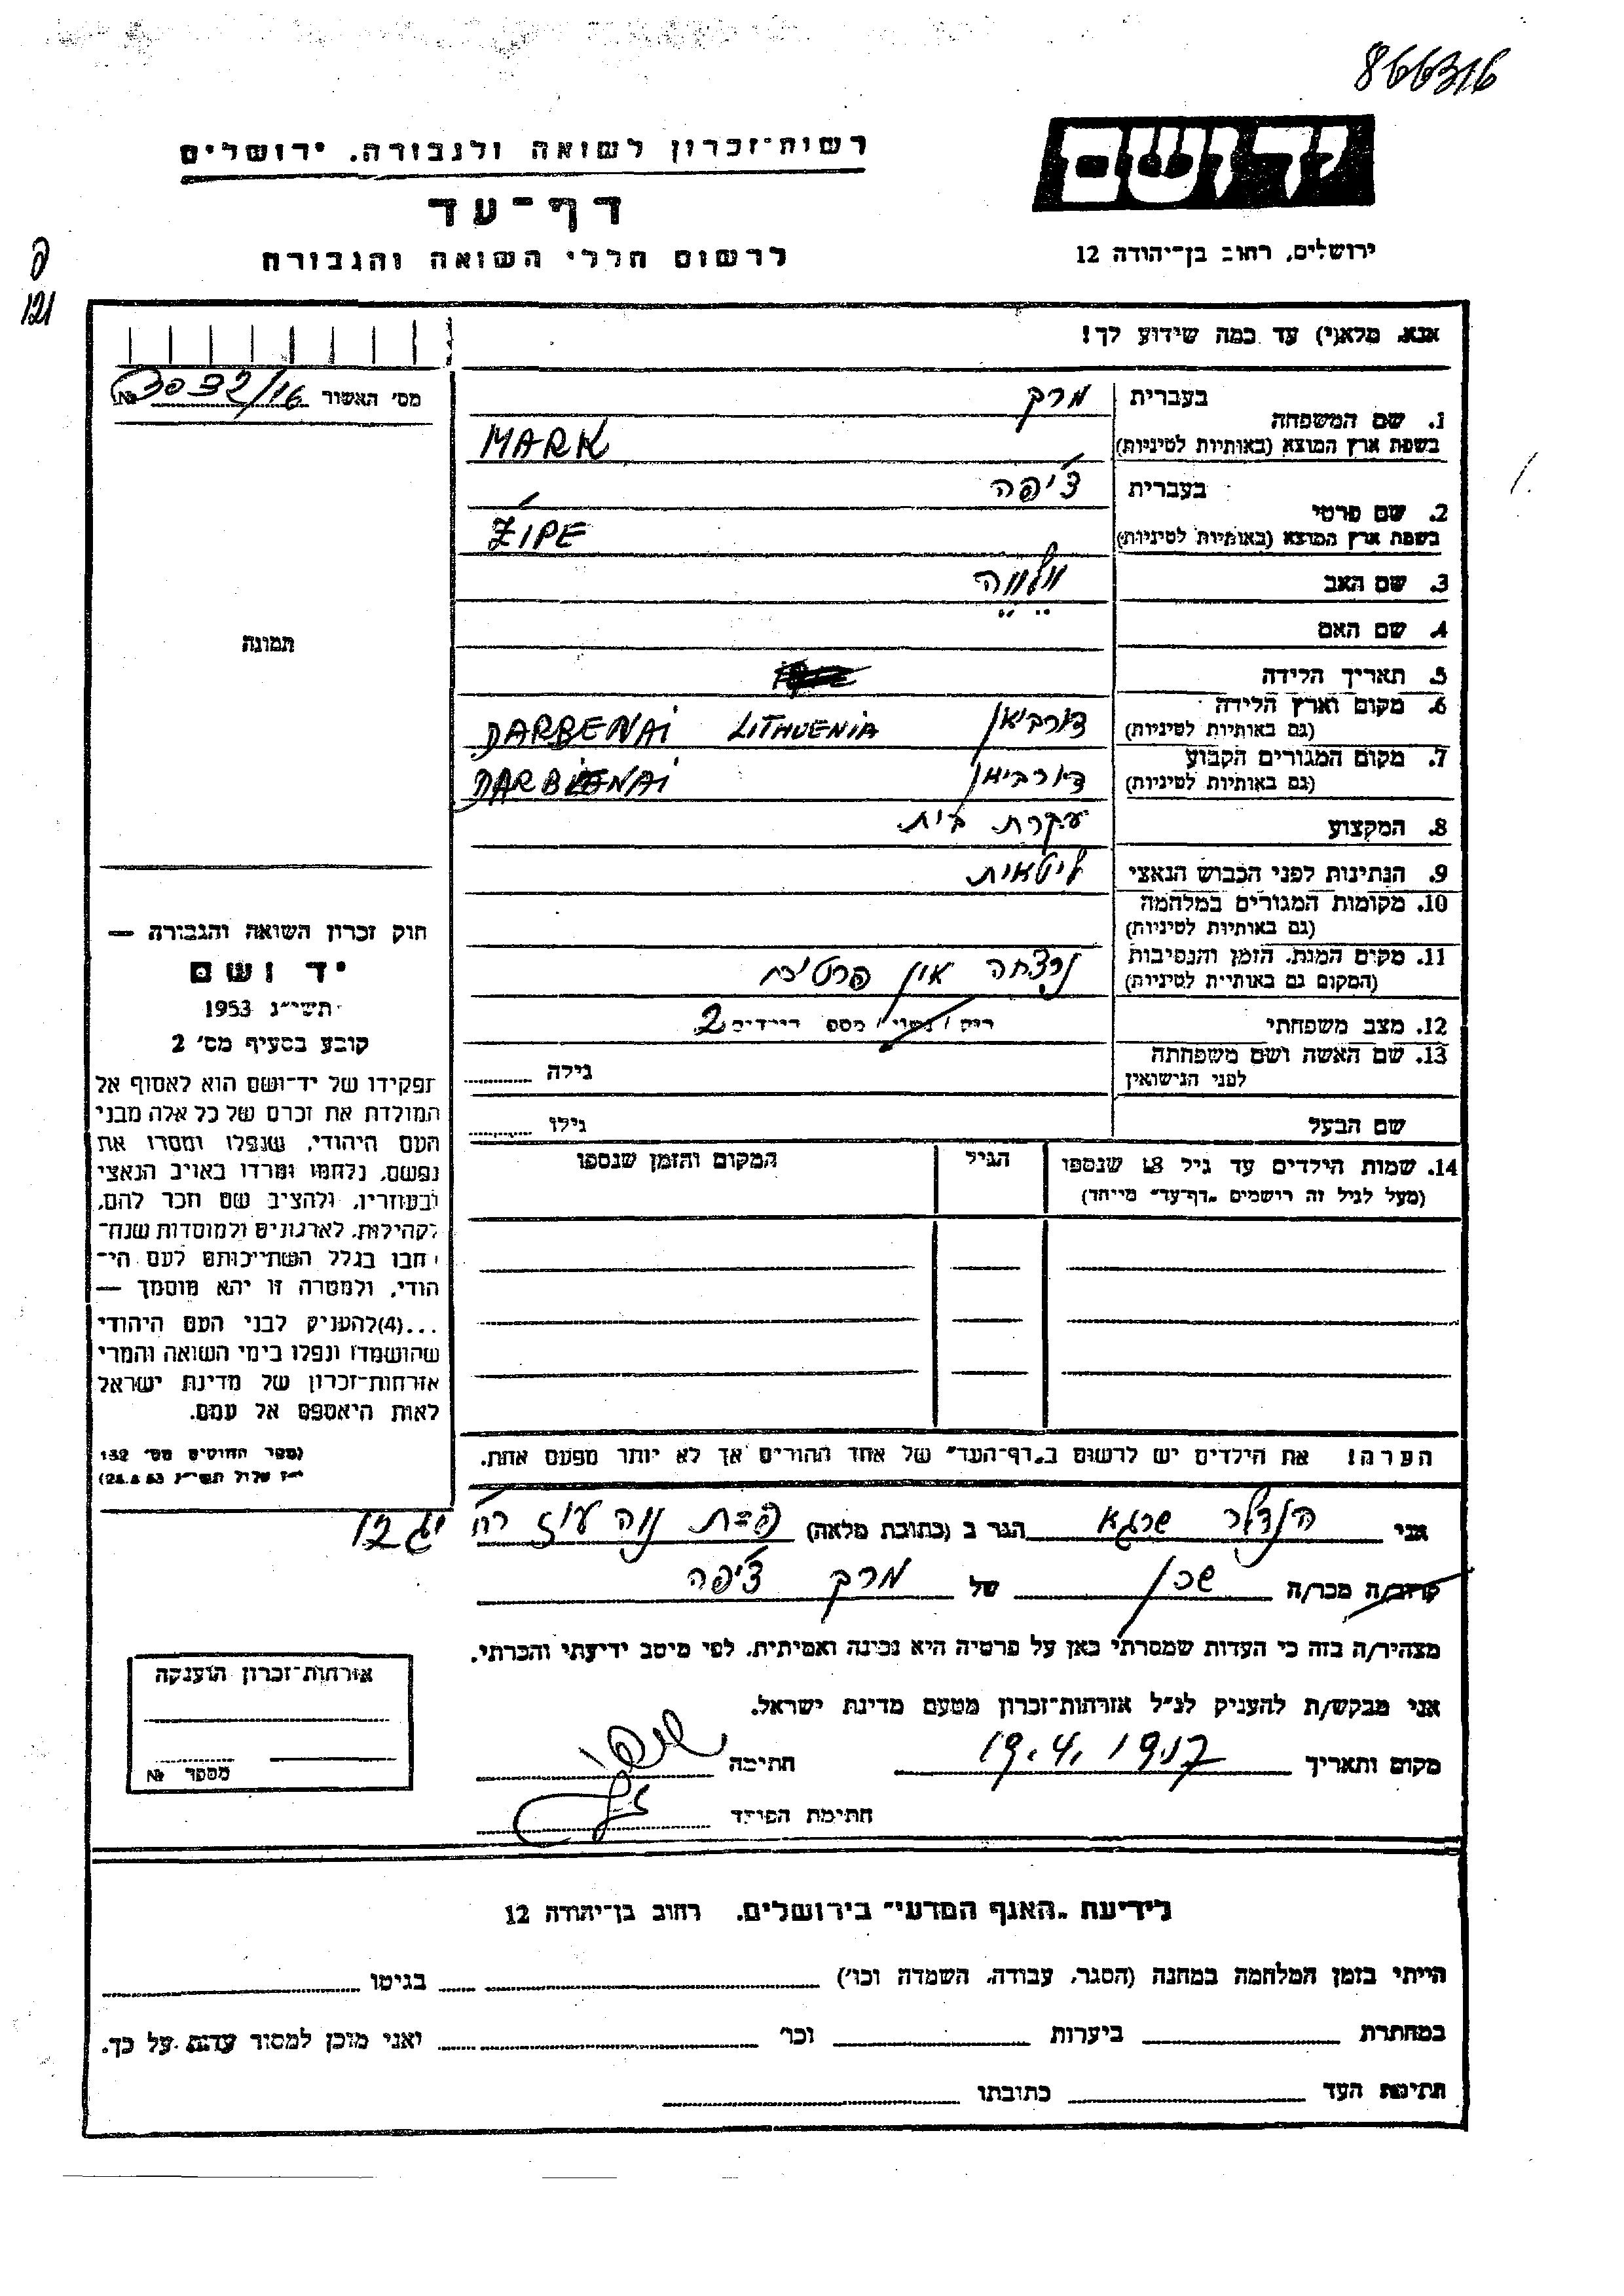 866316
יד ושם
רשות־זכרון לשואה ולגבורה, ירושלים
דף־עד
לרשום חללי השואה והגבורה
ירושלים, רחוב בן־יהודה 12
121
אנא, מלא(י) עד כמה שידוע לך!
מס׳ האשור
1. שם המשפחה
בעברית מרק
בשפת ארץ המוצא (באותיות לטיניות) MARK
2. שם פרטי
בעברית צ׳יפה
בשפת ארץ המוצא (באותיות לטיניות) ŹIPE
3. שם האב וולווה
4. שם האם
5. תאריך הלידה
6. מקום וארץ הלידה
(גם באותיות לטיניות) דורביאן LITHUENIA DARBENAI
7. מקום המגורים הקבוע
(גם באותיות לטיניות) דורביאן DARBIENAI
8. המקצוע עקרת בית
9. הנתינות לפני הכבוש הנאצי ליטאית
10. מקומות המגורים במלחמה
(גם באותיות לטיניות)
11. מקום המות, הזמן והנסיבות
(המקום גם באותיות לטיניות) נרצחה
12. מצב משפחתי רוק / נשוי / מספר הילדים 2
13. שם האשה ושם משפחתה
לפני הנישואין
גילה
שם הבעל גילו
14. שמות הילדים עד גיל 18 שנספו הגיל המקום והזמן שנספו
(מעל לגיל זה רושמים „דף־עד” מייחד)
הערה: את הילדים יש לרשום ב„דף־העד” של אחד ההורים אך לא יותר מפעם אחת.
תמונה
חוק זכרון השואה והגבורה —
יד ושם
תשי״ג 1953
קובע בסעיף מס׳ 2
תפקידו של יד־ושם הוא לאסוף אל
המולדת את זכרם של כל אלה מבני
העם היהודי, שנפלו ומסרו את
נפשם, נלחמו ומרדו באויב הנאצי
ובעוזריו, ולהציב שם וזכר להם,
לקהילות, לארגונים ולמוסדות שנח־
רבו בגלל השתייכותם לעם הי־
הודי, ולמטרה זו יהא מוסמך —
...(4) להעניק לבני העם היהודי
שהושמדו ונפלו בימי השואה והמרי
אזרחות־זכרון של מדינת ישראל
לאות היאספם אל עמם.
(ספר החוקים מס׳ 132
י״ז אלול תשי״ג 28.8.53)
אני הנדלר שרגא הגר ב (כתובת מלאה) נוה עוז רח׳
קרוב/ה מכר/ה שכן של מרק צ׳יפה
מצהיר/ה בזה כי העדות שמסרתי כאן על פרטיה היא נכונה ואמיתית, לפי מיטב ידיעתי והכרתי.
אני מבקש/ת להעניק לנ״ל אזרחות־זכרון מטעם מדינת ישראל.
מקום ותאריך חתימה
חתימת הפוקד
אזרחות־זכרון הוענקה
מספר №
לידיעת „האגף המדעי” בירושלים, רחוב בן־יהודה 12
הייתי בזמן המלחמה במחנה (הסגר, עבודה, השמדה וכו׳) בגיטו
במחתרת ביערות וכו׳ ואני מוכן למסור עדות על כך.
חתימת העד כתובתו